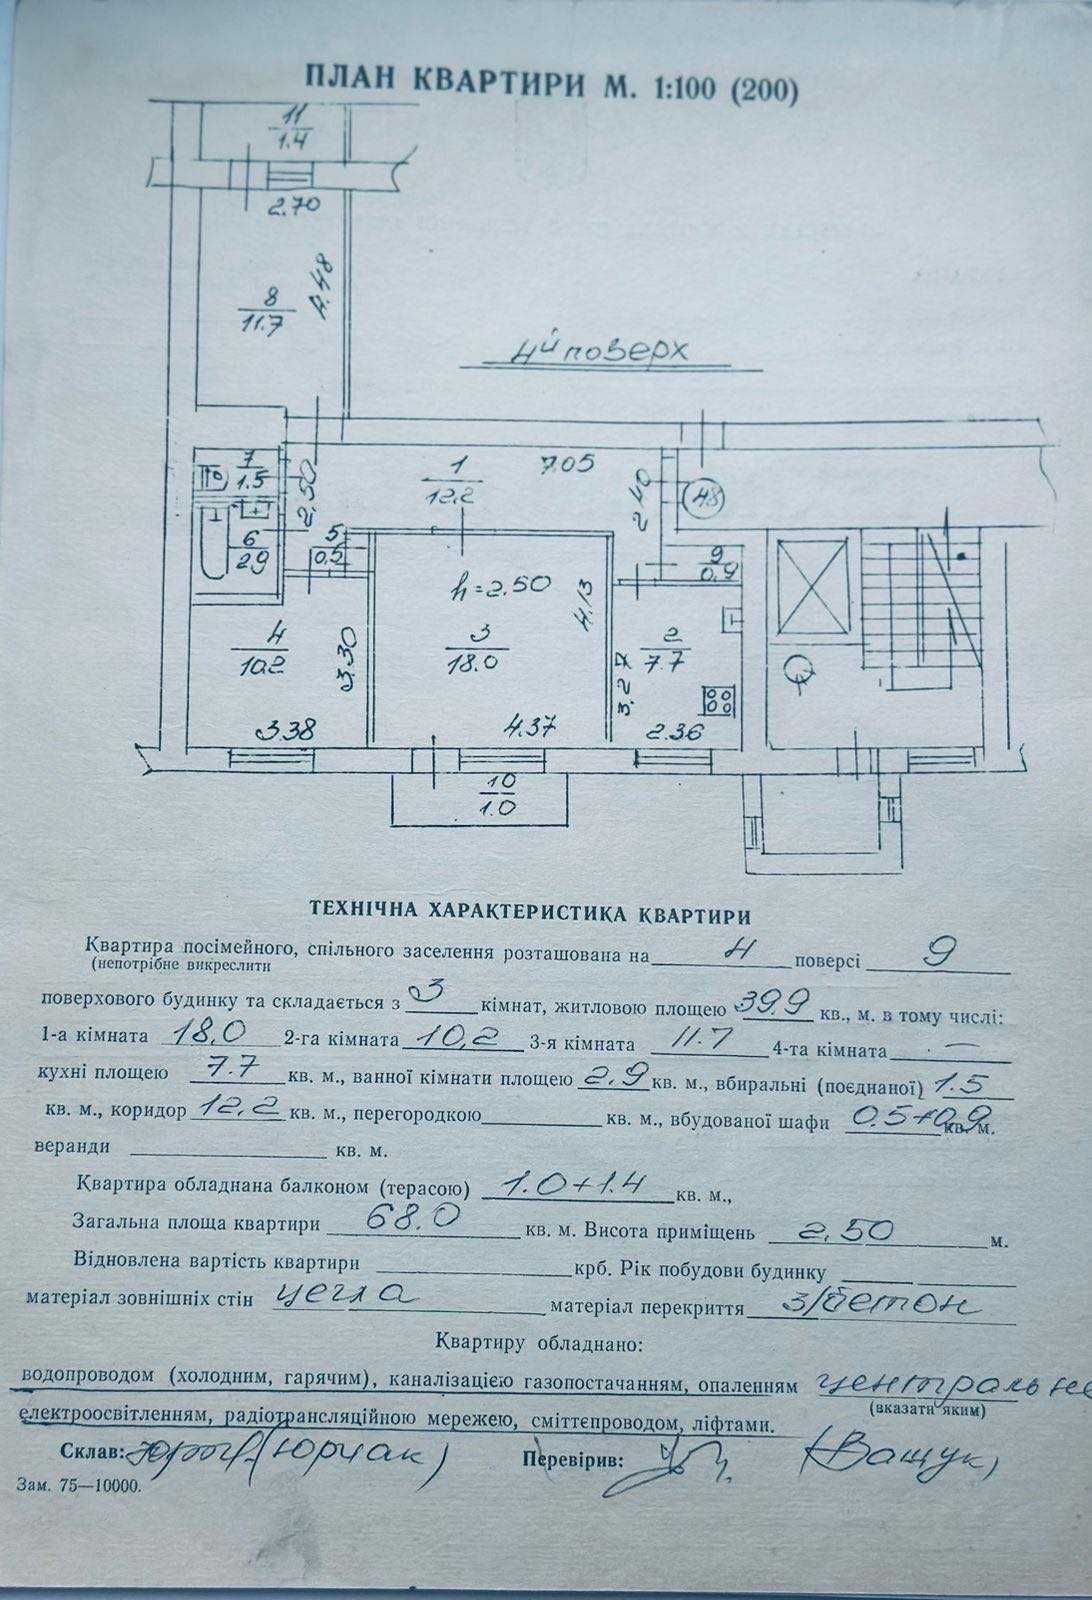 ПЛАН КВАРТИРИ М. 1:100 (200)
11
1.4
2.70
8
11.7
4.48
4й поверх
7
1.5
2.50
1
12.2
7.05
2.40
48
6
2.9
5
0.5
9
0.9
h=2.50
4.13
4
10.2
3.30
3
18.0
2
7.7
3.27
3.38
4.37
2.36
10
1.0
ТЕХНІЧНА ХАРАКТЕРИСТИКА КВАРТИРИ
Квартира посімейного, спільного заселення розташована на 4 поверсі 9
(непотрібне викреслити
поверхового будинку та складається з 3 кімнат, житловою площею 39.9 кв., м. в тому числі:
1-а кімната 18.0 2-га кімната 10,2 3-я кімната 11.7 4-та кімната —
кухні площею 7.7 кв. м., ванної кімнати площею 2.9 кв. м., вбиральні (поєднаної) 1.5
кв. м., коридор 12,2 кв. м., перегородкою кв. м., вбудованої шафи 0.5+0.9 кв. м.
веранди кв. м.
Квартира обладнана балконом (терасою) 1.0+1.4 кв. м.,
Загальна площа квартири 68.0 кв. м. Висота приміщень 2,50 м.
Відновлена вартість квартири крб. Рік побудови будинку
матеріал зовнішніх стін цегла матеріал перекриття з/бетон
Квартиру обладнано:
водопроводом (холодним, гарячим), каналізацією газопостачанням, опаленням центральне
(вказати яким)
електроосвітленням, радіотрансляційною мережею, сміттєпроводом, ліфтами.
Склав: (Юрчак) Перевірив: (Ващук)
Зам. 75—10000.